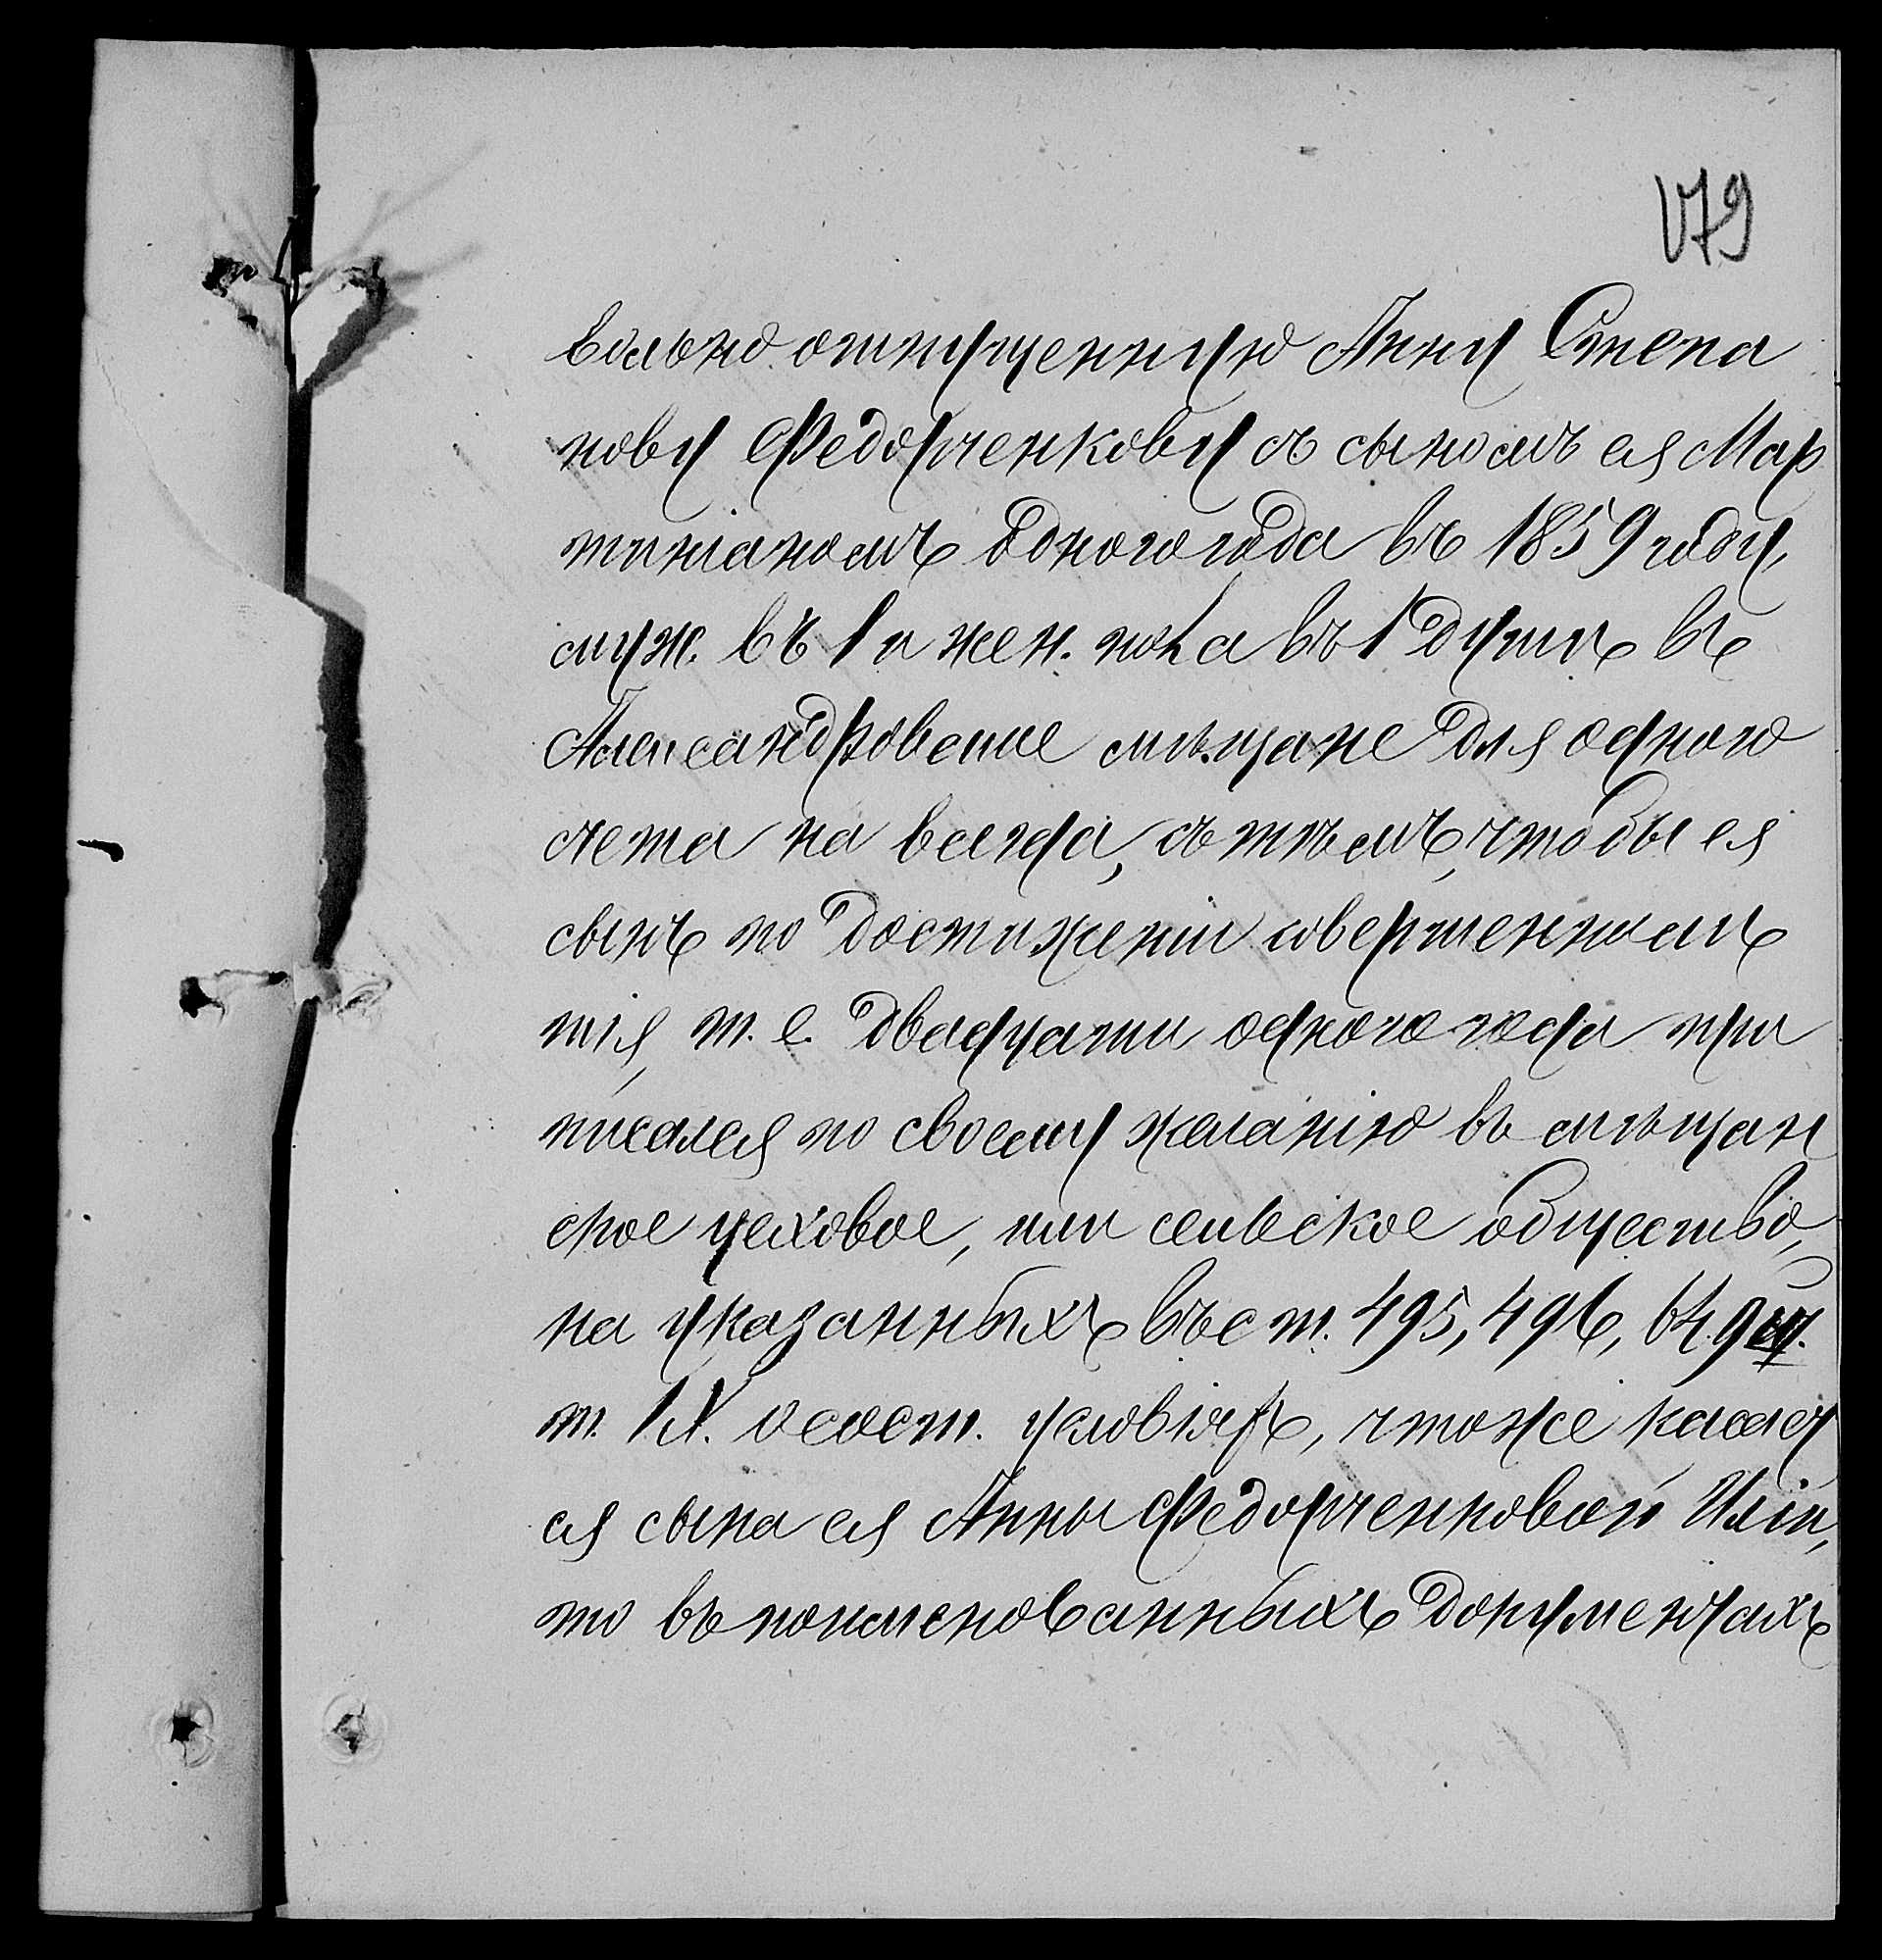 179
вольно отпущенную Анну Степа
нову Федорченкову съ сыномъ ея Мар
тиніаномъ одного года въ 1859 году,
муж. въ 1 и жен. пола въ 1 душѣ въ
Александровские мѣщане для одного
счета на всегда, съ тѣмъ, чтобы ея
сынъ по достиженіи совершеннолѣ
тія, т. е. двадцати одного года при
писался по своему желанію въ мѣщан
ское цеховое, или сельское общество,
на указанныхъ въ ст. 495, 496,
т. IX. о сост. условіяхъ, что же касает
ся сына ея Анны Федорченковой Иліи,
то въ поименованныхъ документахъ